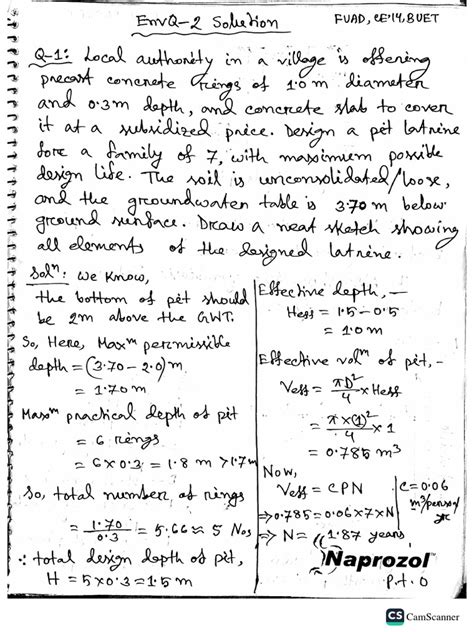 EnvQ-2 Solution
FUAD, CE'14, BUET
Q-1: Local authority in a village is offering
precast concrete rings of 1.0 m diameter
and 0.3 m depth, and concrete slab to cover
it at a subsidized price. Design a pit latrine
for a family of 7, with maximum possible
design life. The soil is unconsolidated/loose,
and the groundwater table is 3.70 m below
ground surface. Draw a neat sketch showing
all elements of the designed latrine.
Solⁿ: We know,
the bottom of pit should
be 2m above the GWT.
So, Here, Maxᵐ permissible
depth = (3.70 - 2.0) m
= 1.70 m
Maxᵐ practical depth of pit
= 6 rings
= 6 x 0.3 = 1.8 m > 1.7 m
So, total number of rings
= 1.70/0.3 = 5.66 ≈ 5 Nos
∴ total design depth of pit,
H = 5 x 0.3 = 1.5 m
Effective depth, —
Heff = 1.5 - 0.5
= 1.0 m
Effective volᵐ of pit, —
Veff = πD²/4 x Heff
= π x (1)²/4 x 1
= 0.785 m³
Now,
Veff = CPN
C = 0.06
m³/person/
yr
⇒ 0.785 = 0.06 x 7 x N
⇒ N = 1.87 years
Naprozol™
P.t.O
CS CamScanner